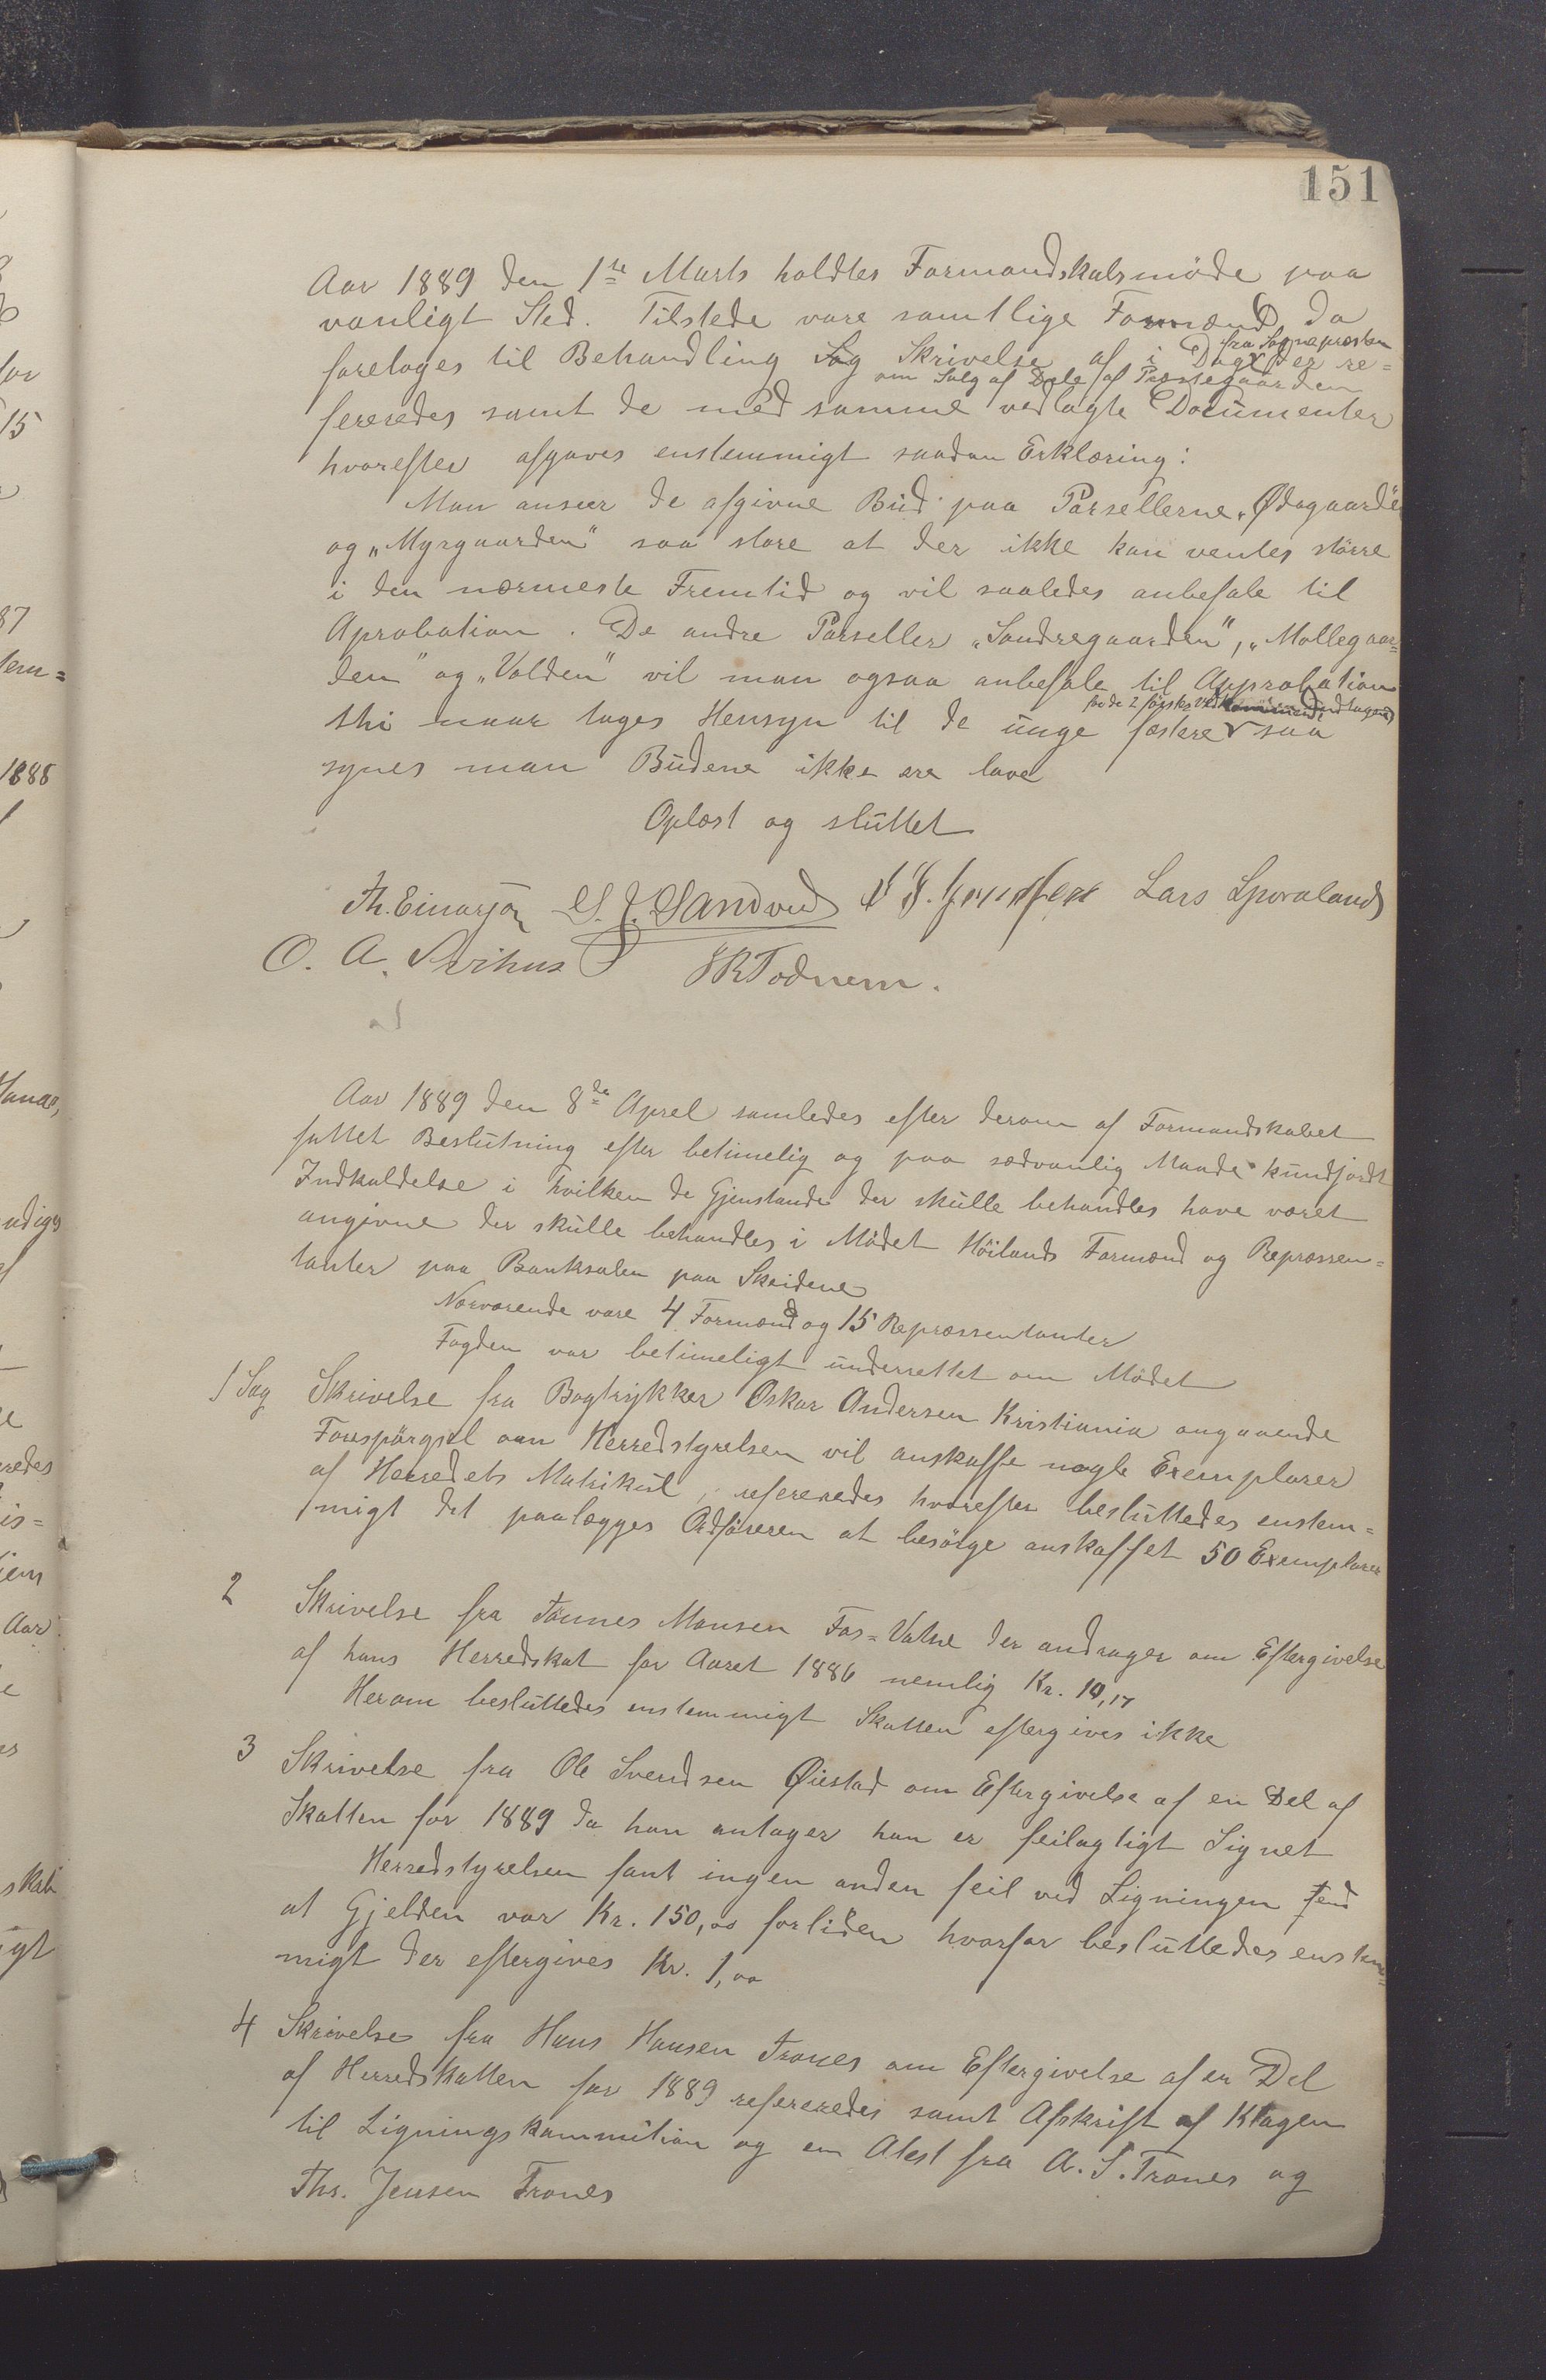 151
Aar 1889 den 1ste Marts holdtes Formandskabsmöde paa
vanligt Sted. Tilstede vare samtlige Formænd, da
fra Sognepræsten
foretoges til Behandling Sag Skrivelse af i Dag der re=
om Salg af Dele af Præstegaarden
fereredes samt de med samme vedlagte Documenter
hvorefter afgaves enstemmigt saadan Erklæring:
Man anseer de afgivne Bud paa Parsellerne „Ødegaarden"
og „Myrgaarden" saa store at der ikke kan ventes större
i den nærmeste Fremtid og vil saaledes anbefale til
Aprobation. De andre Parseller „Søndregaarden", „Mollegaar=
den" og „Volden" vil man ogsaa anbefale til Approbation
for de 2 förstes Vedkommende
thi naar tages Hensyn til de unge fæstere saa
synes man Budene ikke ere lave
Oplæst og sluttet
Th. Einarson S. J. Sandved Lars Sporaland
O. A. Svihus J R Todnem.
Aar 1889 den 8de Aprel samledes efter derom af Formandskabet
fattet Beslutning efter betimelig og paa sædvanlig Maade kundjordt
Indkaldelse i hvilken de Gjenstande der skulle behandles have været
angivne der skulle behandles i Mödet Höilands Formænd og Repræsen=
tanter paa Banksalen paa Skeidene
Nærværende vare 4 Formænd og 15 Repræssentanter
Fogden var betimeligt underrettet om Mödet
1 Sag Skrivelse fra Bogtrykker Oskar Andersen Kristiania angaaende
Forespörgsel om Herredstyrelsen vil anskaffe nogle Exemplarer
af Herredets Matrikul, refereredes hvorefter besluttedes enstem=
migt det paalægges Ordföreren at besörge anskaffet 50 Exemplarer
2 Skrivelse fra Tönnes Monsen Fos=Vatne der andrager om Eftergivelse
af hans Herredskat for Aaret 1886 nemlig Kr. 10,17
Herom besluttedes enstemmigt Skatten eftergives ikke
3 Skrivelse fra Ole Svendsen Øiestad om Eftergivelse af en Del af
Skatten for 1889 da han antager han er feilagtigt Lignet
Herredstyrelsen fant ingen anden feil ved Ligningen end
at Gjelden var Kr. 150,00 forliden hvorfor besluttedes enstem=
migt der eftergives Kr. 1,00
4 Skrivelse fra Hans Hansen Trones om Eftergivelse af en Del
af Herredskatten for 1889 refereredes samt Afskrift af Klagen
til Ligningskommition og en Atest fra A. S. Trones og
Ths. Jensen Trones